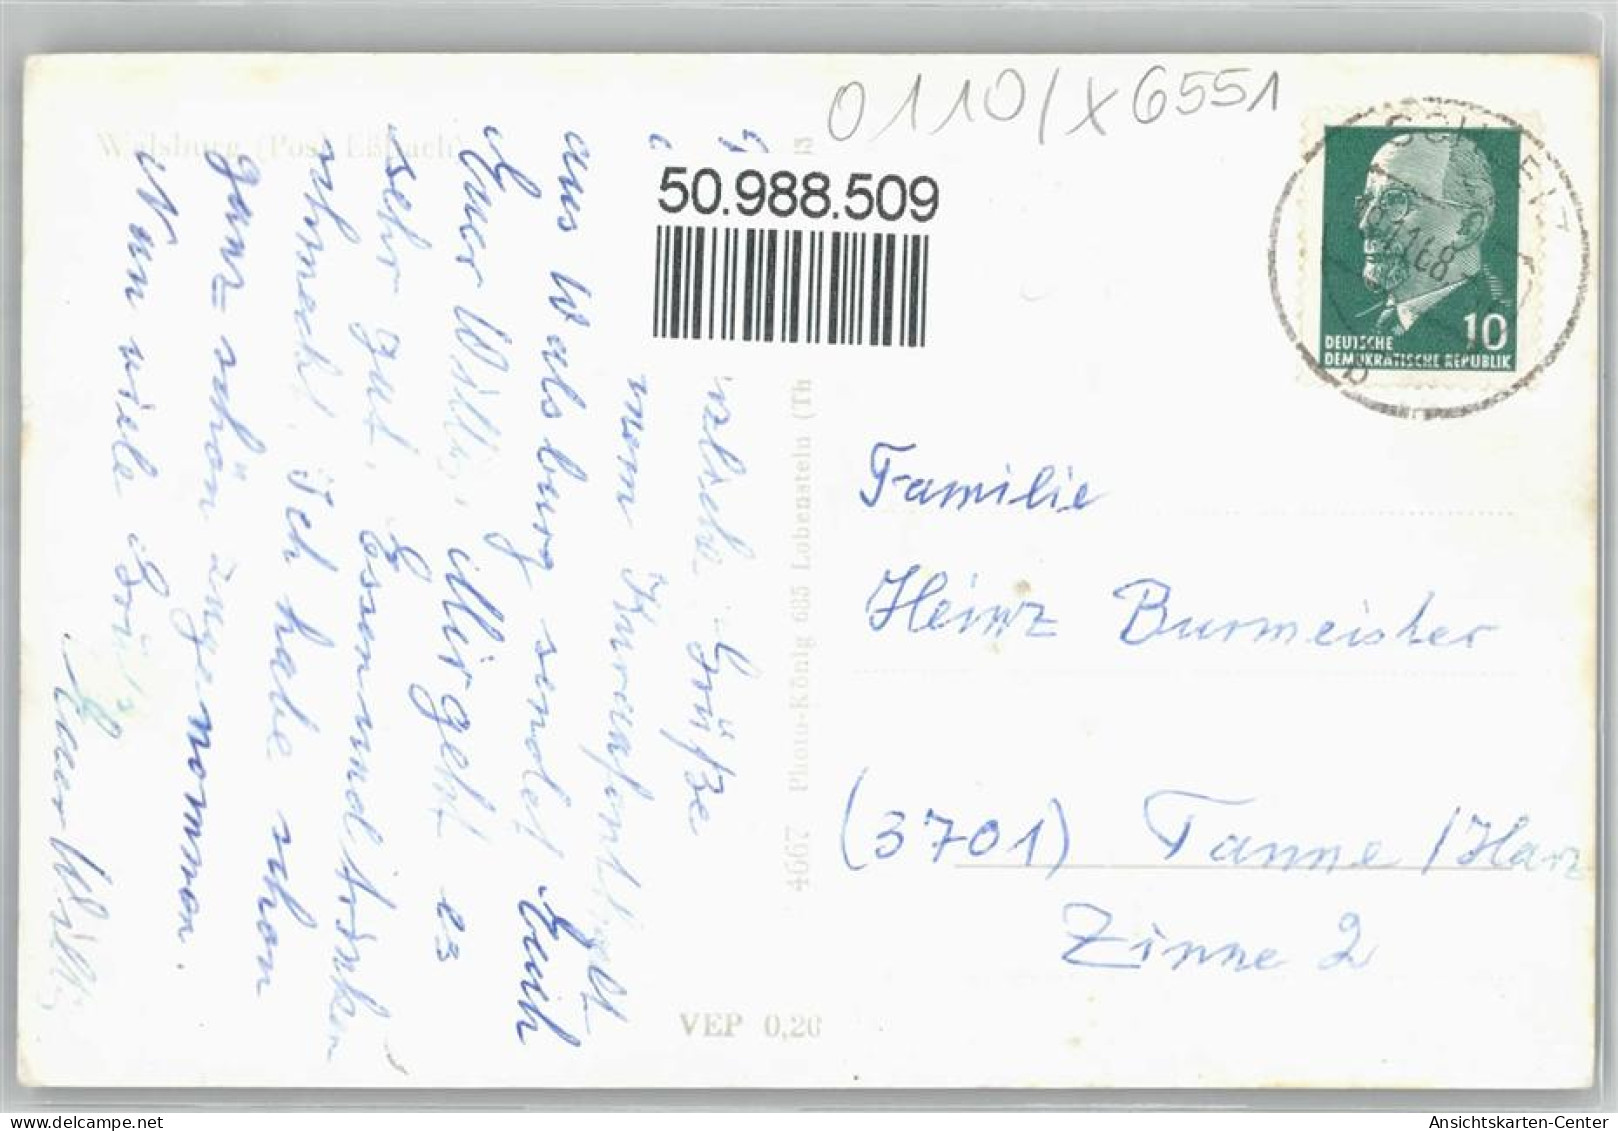 0110/X6551
50.988.509
Walsburg (Post Eßbach)
SCHLEIZ
.1168
10
DEUTSCHE
DEMOKRATISCHE REPUBLIK
Grüße
nem Kuraufenthalt
aus Walsburg sendet Euch
Euer Willi, Mir geht es
sehr gut. Essen und trinken
schmeckt. Ich habe schon
ganz schön zugenommen.
Nun viele Grüße
Euer Willi
4667 Photo-König 685 Lobenstein (Th
VEP 0,20
Familie
Heinz Burmeister
(3701) Tanne / Harz
Zinne 2
Ansichtskarten-Center